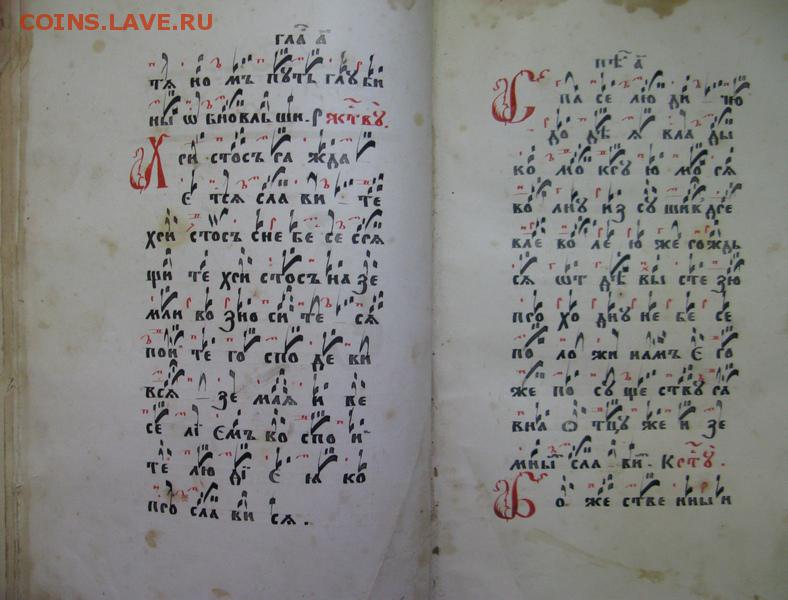 COINS.LAVE.RU
гла҃ а҃
тѧ ко мъ пꙋть глꙋ би
ны ѡ бно вль ши . рж҃твꙋ .
Хри стосъ ра жда
є тсѧ сла ви те
хри стосъ сне бе се срѧ
щи те хри стосъ на зе
мли во зно си те сѧ
пои те го спо де ви
всѧ зе млѧ и ве
се лї емъ во спо и
те лю дї є ꙗ ко
про сла ви сѧ .
пѣ҃ а҃
Спа се лю ди чю
до дѣ ѧ вла ды
ко мо крꙋ ю мо рѧ
во лнꙋ из сꙋ шивъ дре
вле во ле ю же рождь
сѧ ѿт дѣ вы сте зю
про хо днꙋ не бе се
по ло жи намъ є го
же по сꙋ ще ствꙋ ра
вна ѻ тцꙋ же и зе
мны сла ви . Крт҃ꙋ .
Бо же стве ныи